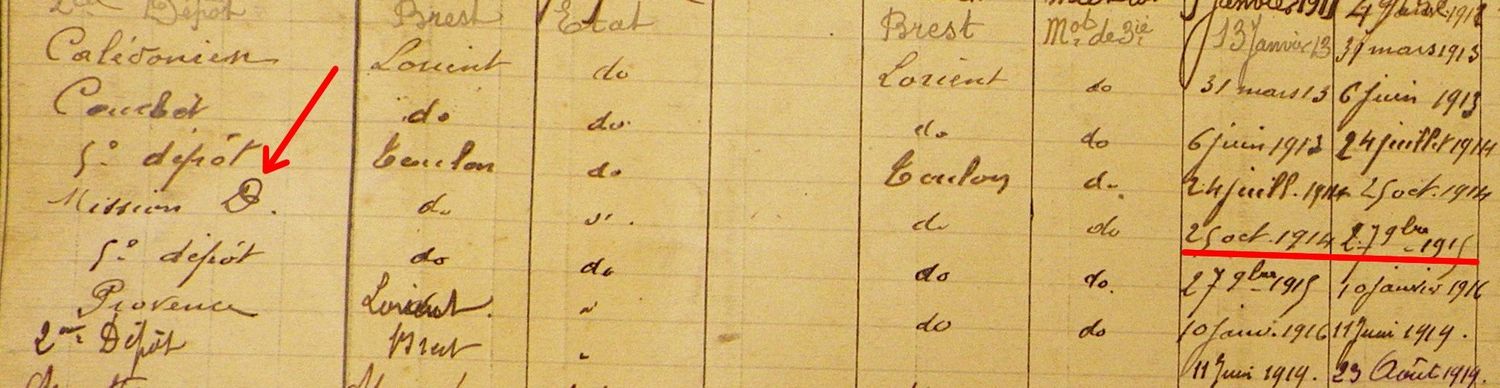 Dépôt Brest Etat Brest Mot. de 3ie 13 Janvier 13 31 mars 1913
Calédonien Lorient do Lorient do 31 mars 13 6 juin 1913
do do do do 6 juin 1913 24 juillet 1914
5° dépôt Toulon do Toulon do 24 juill. 1914 25 oct. 1914
Mission D. do do do 25 oct. 1914 27 9bre 1915
5° dépôt do do do do 27 9bre 1915 10 janvier 1916
Provence Lorient " do do 10 janv. 1916 11 Juin 1919.
2me Dépôt Brest " 11 Juin 1919. 23 Août 1919.